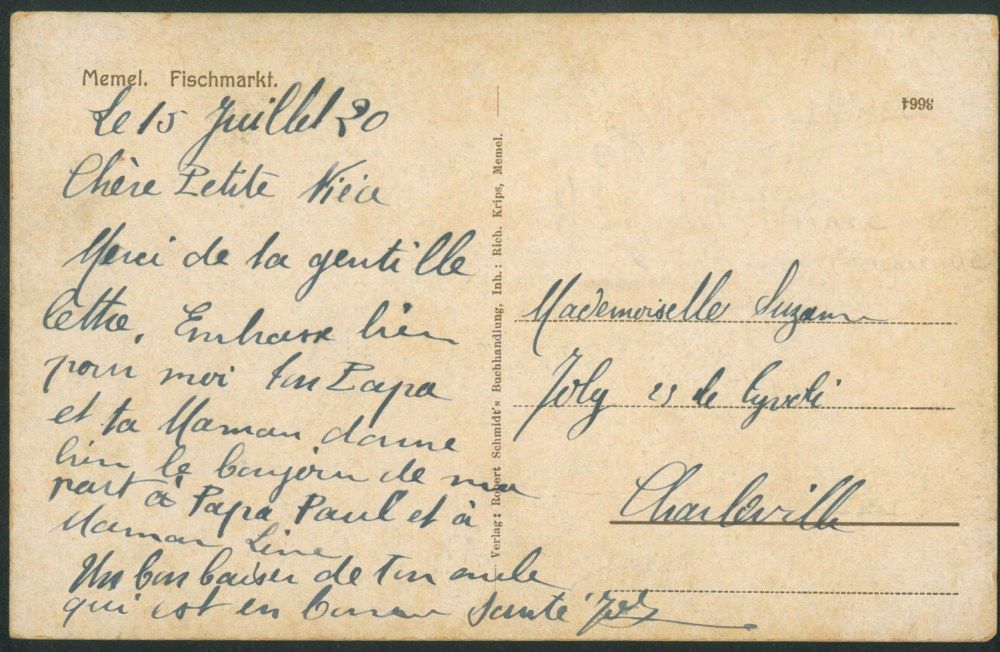 Memel. Fischmarkt.
1998
Le 15 Juillet 20
Chère Petite Nièce
Merci de ta gentille
lettre. Embrasse bien
pour moi ton Papa
et ta Maman donne
bien le bonjour de ma
part à Papa Paul et à
Maman Line
Un bon baiser de ton oncle
qui est en bonne santé
Verlag: Robert Schmidt's Buchhandlung, Inh.: Rich. Krips, Memel.
Mademoiselle Suzanne
Joly 23 de
Charleville